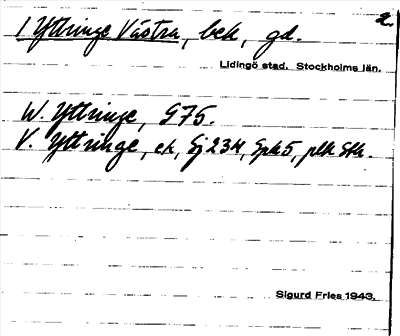 2.
1 Yttringe Västra, bek, gd.
Lidingö stad. Stockholms län.
W. Yttringe, G75.
V. Yttringe, ek, Ej 234, Spk5, plk Sth.
Sigurd Fries 1943.